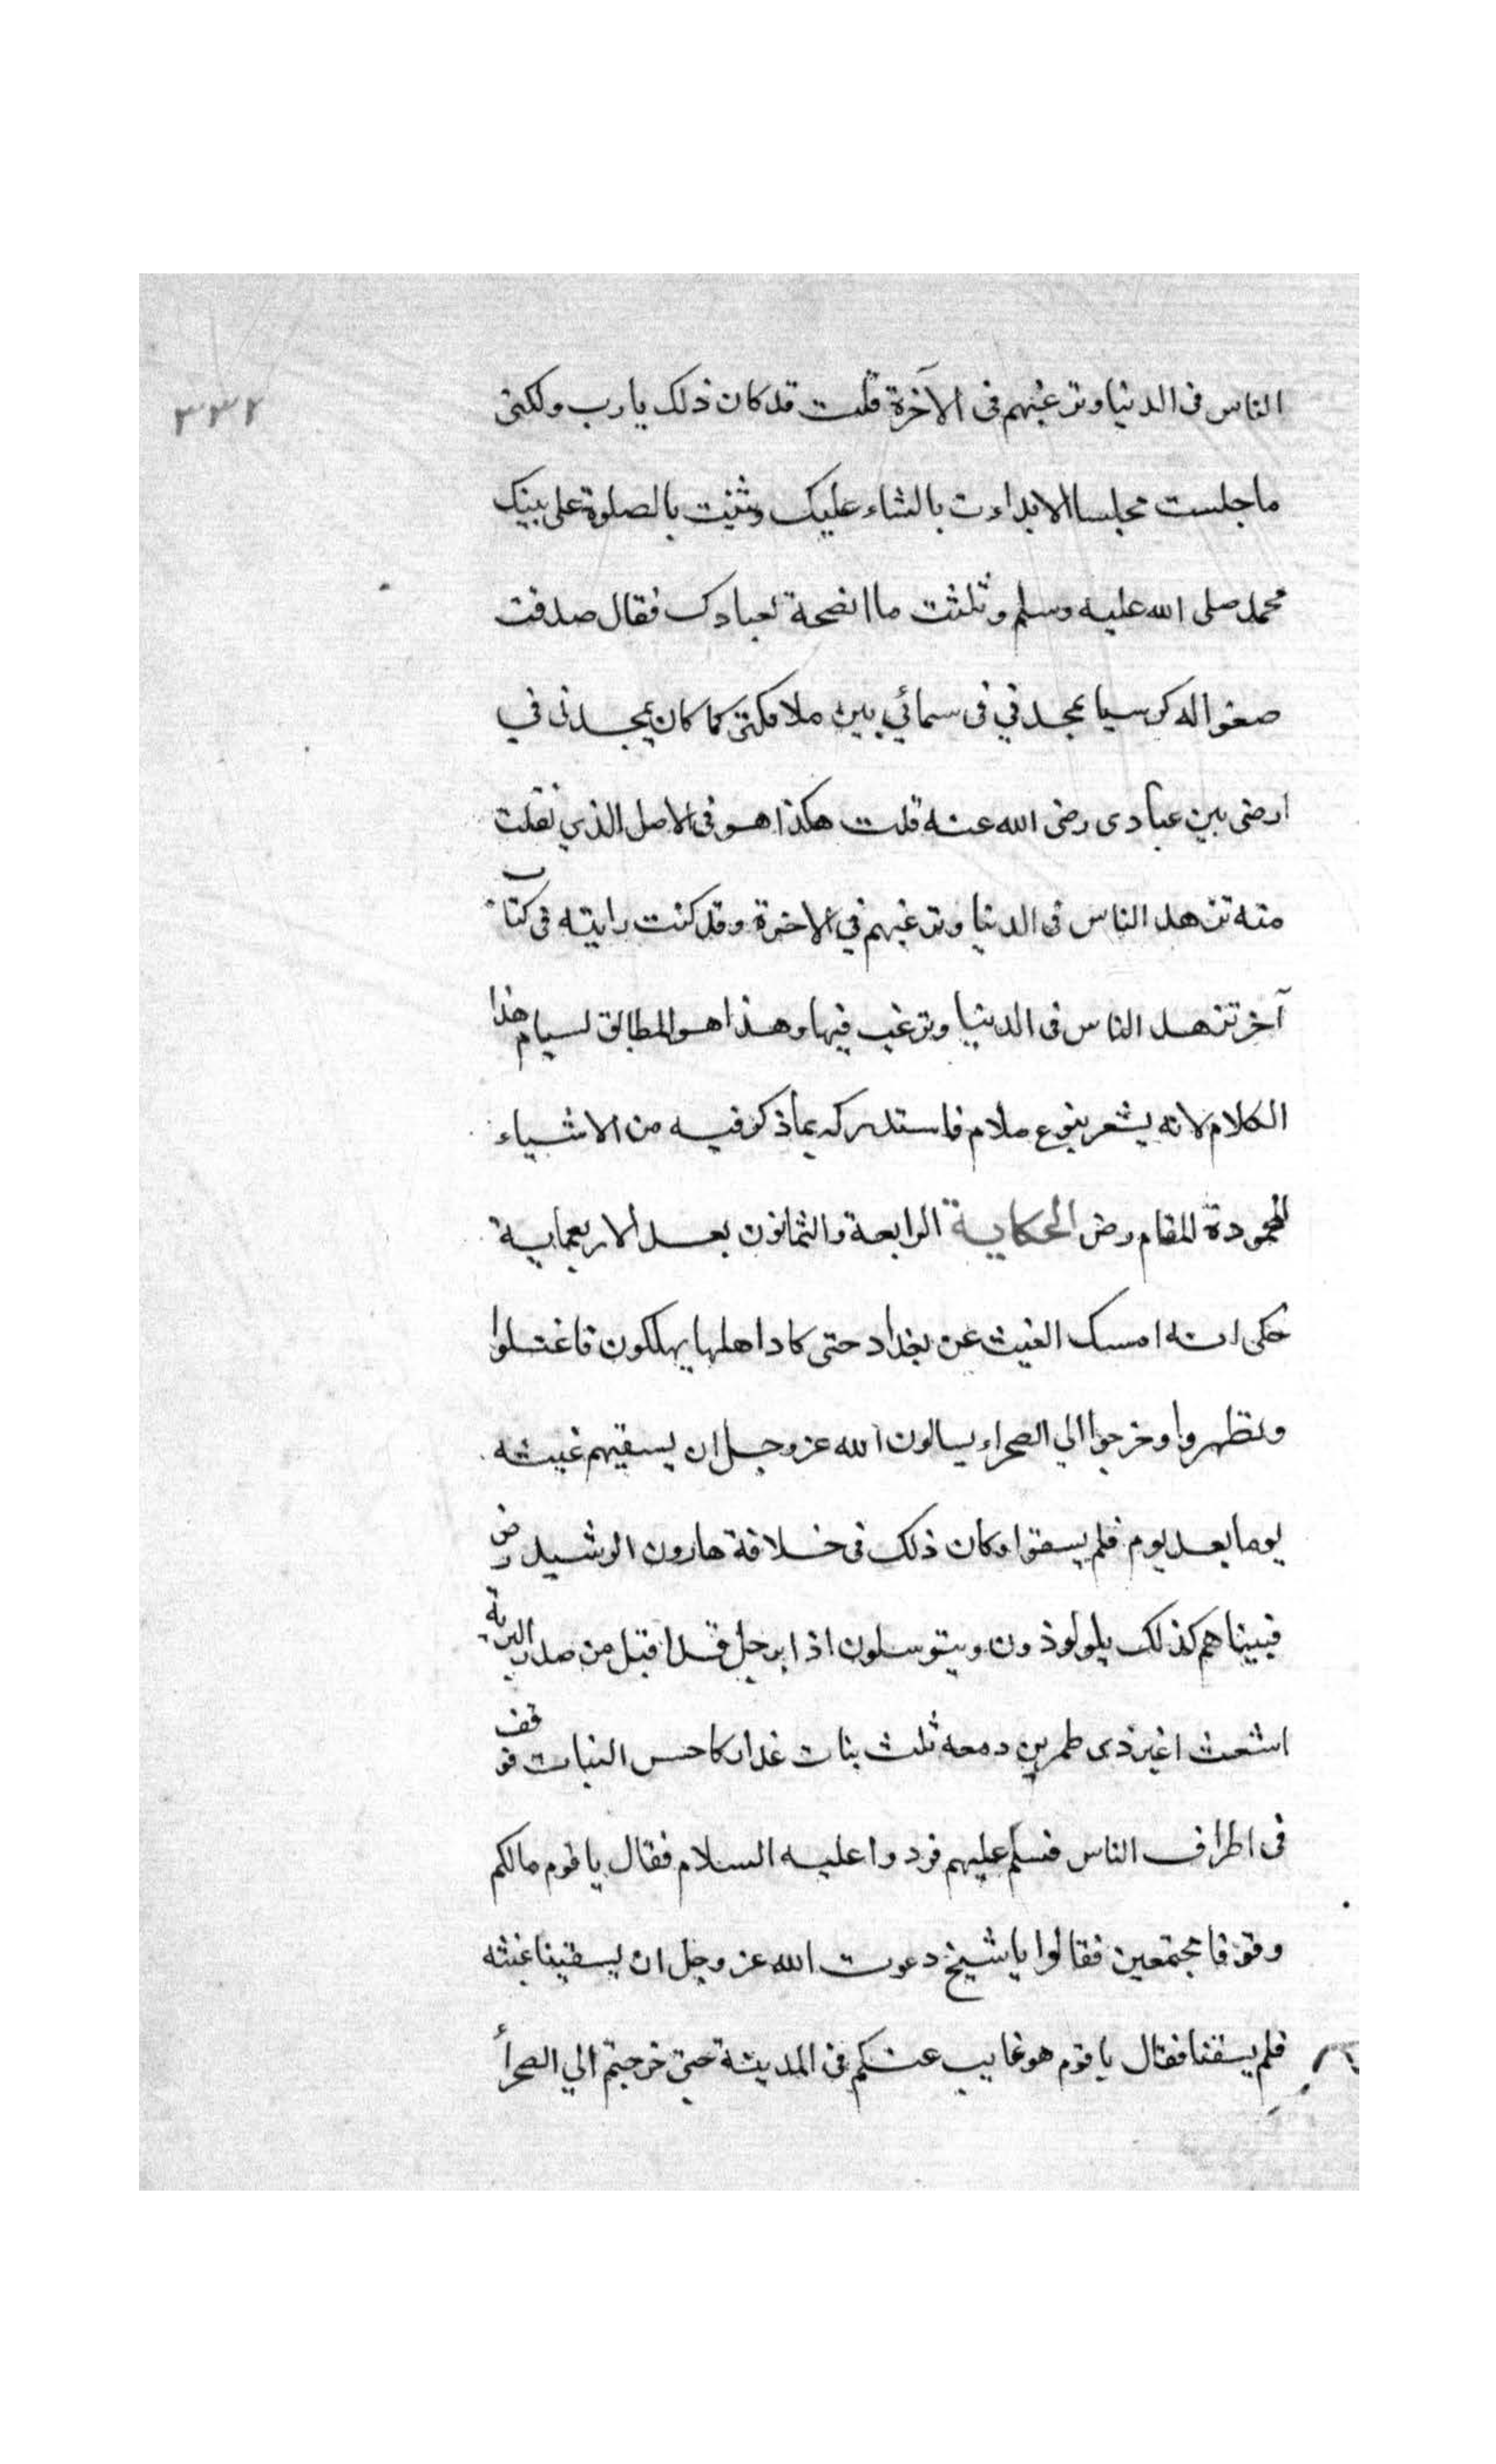 ٣٣٢
الناس فى الدنيا وترغبهم فى الآخرة قلت قد كان ذلك يا رب ولكنى
ما جلست مجلسا الا بداءت بالثناء عليك وثنيت بالصلوة على نبيك
محمد صلى الله عليه وسلم وثلثت ما انصحة لعبادك فقال صدقت
صغوا له كرسيا يمجدني فى سمائي بين ملائكتى كما كان يمجدنى في
ارضى بين عبادى رضى الله عنه قلت هكذا هو فى الاصل الذي نقلت
منه تزهد الناس فى الدنيا وترغبهم في الاخرة وقد كنت رايته فى كتاب
آخر تزهد الناس فى الدنيا وترغب فيها وهذا هو المطابق لسيام هذا
الكلام لانه يشعر بنوع ملام فاستدركه بما ذكر فيه من الاشياء
المحمودة المقام رضى الحكاية الرابعة والثمانون بعد الاربعماية
حكى انه امسك الغيث عن بغداد حتى كاد اهلها يهلكون فاغتسلوا
وتطهروا وخرجوا الي الصحراء يسالون الله عز وجل ان يسقيهم غيثه
يوما بعد يوم فلم يسقوا وكان ذلك فى خلافة هارون الرشيد رض
فبينما هم كذلك يلولوذون ويتوسلون اذا برجل قد اقبل من صدر البرية
اشعث اغبر ذى طمرين ومعه ثلث بنات عذار كاحس النبات فوقف
فى اطراف الناس فسلم عليهم فردوا عليه السلام فقال يا قوم مالكم
وقوفا مجتمعين فقالوا يا شيخ دعوت الله عز وجل ان يسقينا غيثه
فلم يسقنا فقال يا قوم هو غايب عنكم فى المدينة حتى خرجتم الي الصحرأ